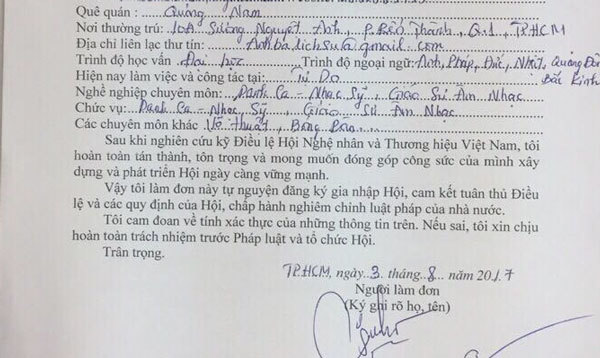 Quê quán : Quảng Nam
Nơi thường trú: 10A Sương Nguyệt Anh, P.Bến Thành, Q.1, TP.HCM
Địa chỉ liên lạc thư tín: Anhba.lichsu@gmail.com
Trình độ học vấn Đại học Trình độ ngoại ngữ: Anh, Pháp, Đức, Nhật, Quảng Đông
Bắc Kinh
Hiện nay làm việc và công tác tại: Tự Do
Nghề nghiệp chuyên môn: Danh Ca - Nhạc Sỹ, Giáo Sư Âm Nhạc
Chức vụ: Danh Ca - Nhạc Sỹ, Giáo Sư Âm Nhạc
Các chuyên môn khác Võ thuật, Bóng Bàn
Sau khi nghiên cứu kỹ Điều lệ Hội Nghệ nhân và Thương hiệu Việt Nam, tôi
hoàn toàn tán thành, tôn trọng và mong muốn đóng góp công sức của mình xây
dựng và phát triển Hội ngày càng vững mạnh.
Vậy tôi làm đơn này tự nguyện đăng ký gia nhập Hội, cam kết tuân thủ Điều
lệ và các quy định của Hội, chấp hành nghiêm chỉnh luật pháp của nhà nước.
Tôi cam đoan về tính xác thực của những thông tin trên. Nếu sai, tôi xin chịu
hoàn toàn trách nhiệm trước Pháp luật và tổ chức Hội.
Trân trọng.
TP.HCM, ngày 3 tháng 8 năm 2017
Người làm đơn
(Ký ghi rõ họ, tên)